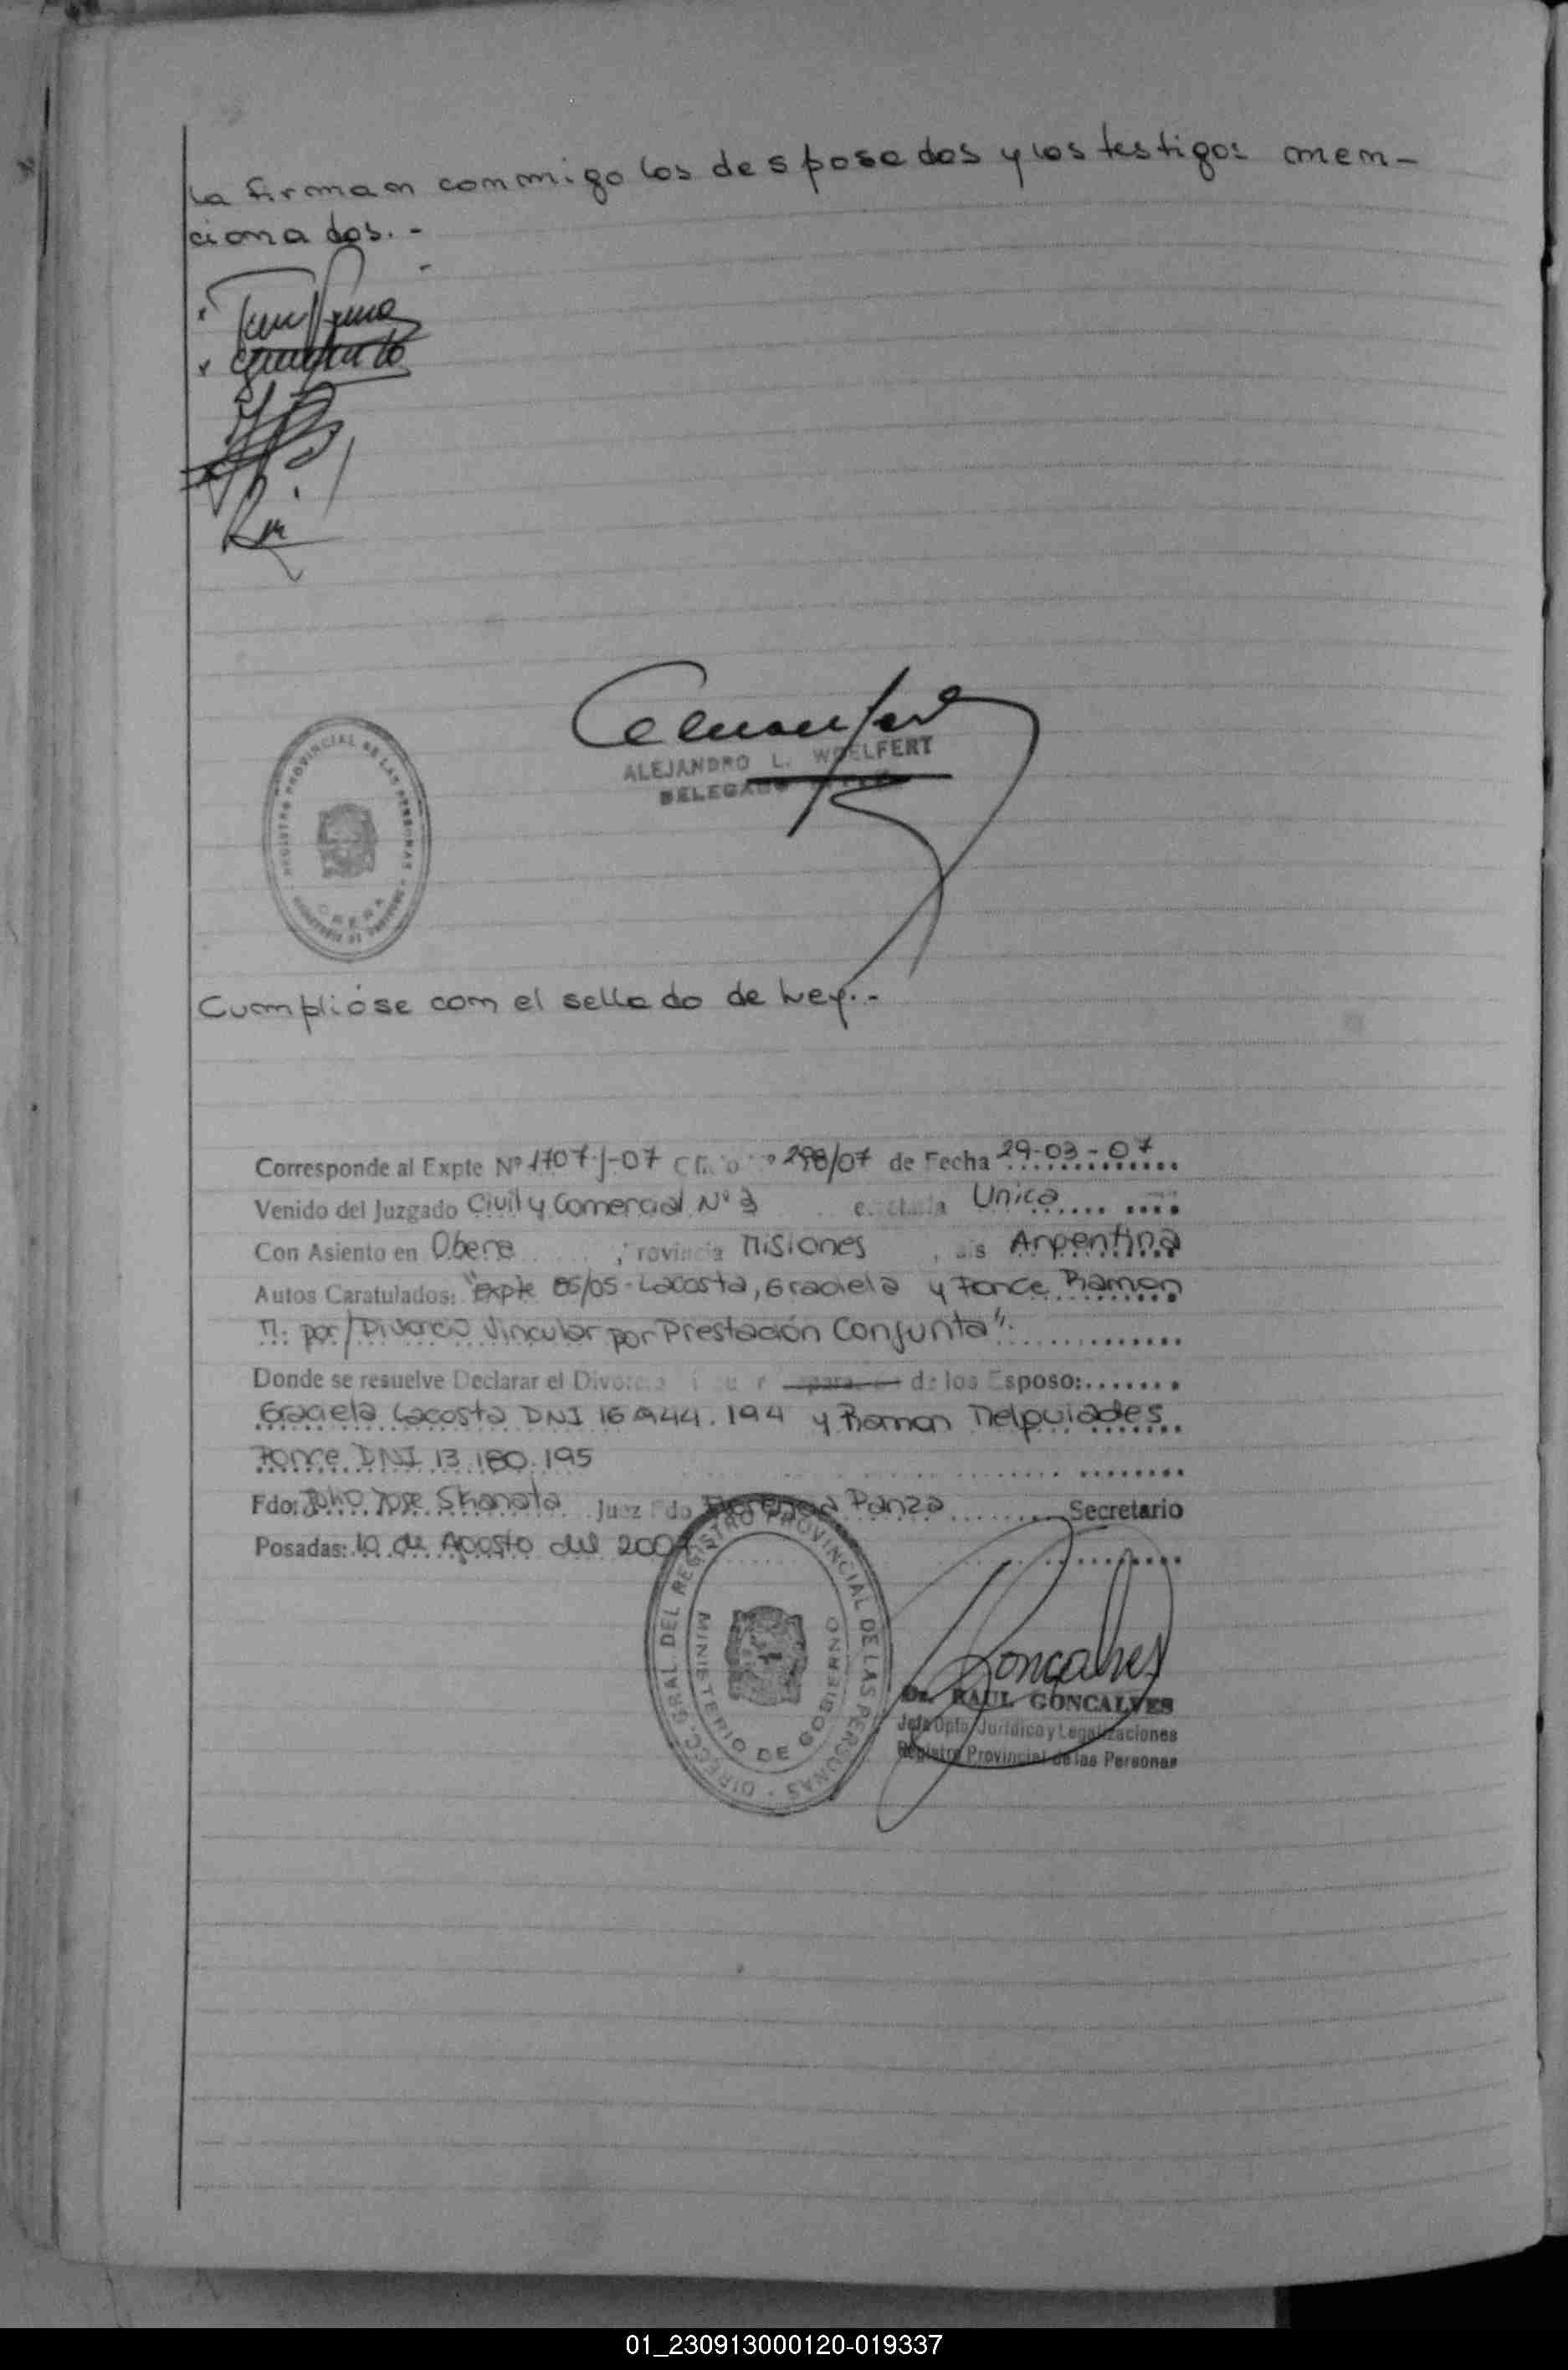 la firman conmigo los desposados y los testigos men-
cionados.-
ALEJANDRO L. WOELFERT
DELEGADO
REGISTRO PROVINCIAL DE LAS PERSONAS
OBERA
Cumplióse con el sellado de Ley.-
Corresponde al Expte Nº 1707-J-07 298/07 de Fecha 29-03-07
Venido del Juzgado Civil y Comercial Nº 3 Unica
Con Asiento en Obera Provincia Misiones Argentina
Autos Caratulados: "Expte 85/05-Lacosta, Graciela y Ponce Ramon
M. por/Divorcio Vincular por Prestación Conjunta".
Donde se resuelve Declarar el Divorcio de los Esposo:
Graciela Lacosta DNI 16.944.194 y Ramon Melquiades
Ponce DNI 13.180.195
Fdo: Julio Jose Skanata Juez Fdo Florencia Panza Secretario
Posadas: 10 de Agosto del 2007
DIRECC. GRAL DEL REGISTRO PROVINCIAL DE LAS PERSONAS
MINISTERIO DE GOBIERNO
Goncalves
Dr. RAUL GONCALVES
Jefe Dpto. Jurídico y Legalizaciones
Registro Provincial de las Personas
01_230913000120-019337